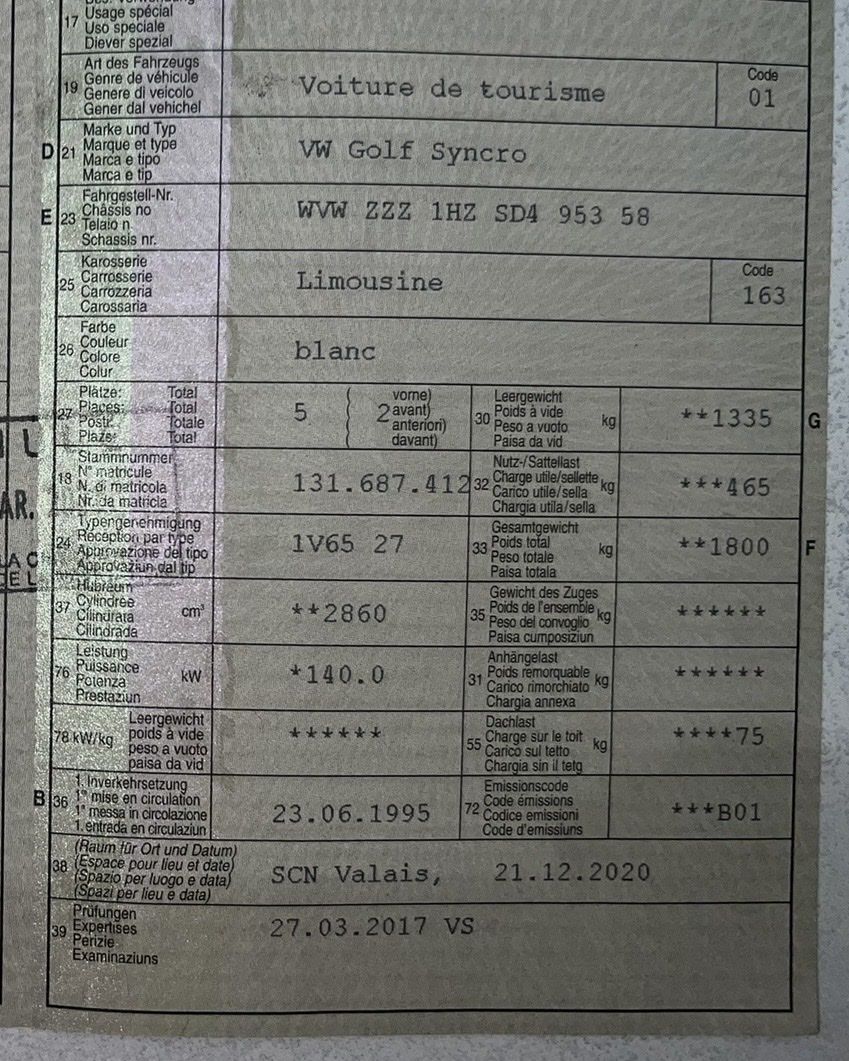 17 Usage spécial
Uso speciale
Diever spezial
19 Art des Fahrzeugs
Genre de véhicule
Genere di veicolo
Gener dal vehichel
Voiture de tourisme
Code
01
D 21 Marke und Typ
Marque et type
Marca e tipo
Marca e tip
VW Golf Syncro
E 23 Fahrgestell-Nr.
Châssis no
Telaio n
Schassis nr.
WVW ZZZ 1HZ SD4 953 58
25 Karosserie
Carrosserie
Carrozzeria
Carossaria
Limousine
Code
163
26 Farbe
Couleur
Colore
Colur
blanc
27 Plätze: Total
Places: Total
Posti: Totale
Plazs: Total
5
2
vorne)
avant)
anteriori)
davant)
30 Leergewicht
Poids à vide
Peso a vuoto
Paisa da vid
kg
**1335
G
18 Stammnummer
N° matricule
N. di matricola
Nr. da matricla
131.687.412
32 Nutz-/Sattellast
Charge utile/sellette
Carico utile/sella
Chargia utila/sella
kg
***465
24 Typengenehmigung
Réception par type
Approvazione del tipo
Approvaziun dal tip
1V65 27
33 Gesamtgewicht
Poids total
Peso totale
Paisa totala
kg
**1800
F
37 Hubraum
Cylindrée
Cilindrata
Cilindrada
cm³
**2860
35 Gewicht des Zuges
Poids de l'ensemble
Peso del convoglio
Paisa cumposiziun
kg
******
76 Leistung
Puissance
Potenza
Prestaziun
kW
*140.0
31 Anhängelast
Poids remorquable
Carico rimorchiato
Chargia annexa
kg
******
78 kW/kg
Leergewicht
poids à vide
peso a vuoto
paisa da vid
******
55 Dachlast
Charge sur le toit
Carico sul tetto
Chargia sin il tetg
kg
****75
B 36 1. Inverkehrsetzung
1re mise en circulation
1a messa in circolazione
1. entrada en circulaziun
23.06.1995
72 Emissionscode
Code émissions
Codice emissioni
Code d'emissiuns
***B01
38 (Raum für Ort und Datum)
(Espace pour lieu et date)
(Spazio per luogo e data)
(Spazi per lieu e data)
SCN Valais, 21.12.2020
39 Prüfungen
Expertises
Perizie
Examinaziuns
27.03.2017 VS